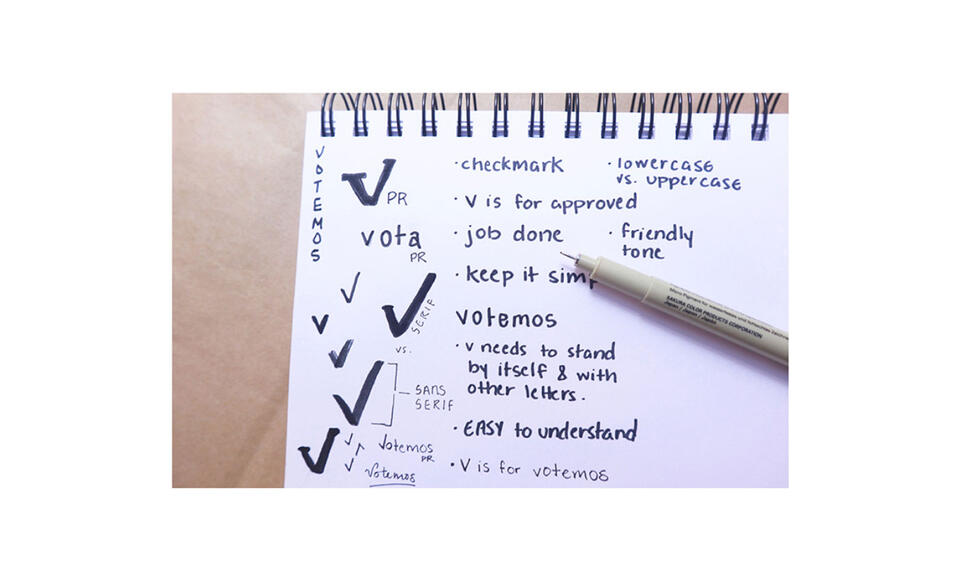 VOTEMOS
PR
vota
PR
SERIF
vs.
SANS
SERIF
Votemos
PR
Votemos
· checkmark
· lowercase
vs. uppercase
· V is for approved
· job done
· friendly
tone
· keep it simp
votemos
· v needs to stand
by itself & with
other letters.
· EASY to understand
· V is for votemos
SAKURA COLOR PRODUCTS CORPORATION
Japan / Japon / Japan